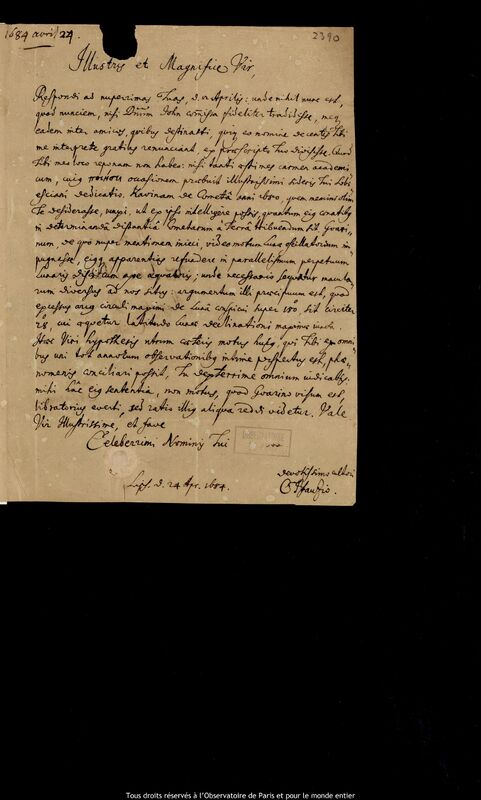 1684 avril 24.
2390
Illustris et Magnifice Vir,
Respondi ad nuperrimas Tuas, d. 12 Aprilis: unde nihil nunc est,
quod nunciem, nisi Dnum John comissa fideliter tradidisse, meq
eadem inter amicos, quibus destinasti, quin eo nomine decentes Tibi
me interprete gratias renunciant, ex praescripto Tuo divisisse. Quod
Tibi mea loco reponam non habeo: nisi tanti estimes carmen academi
cum, cuius ποίησιν occasionem praebuit illustrissimi sideris Tui Sobi
esciani dedicatio. Kavinam de Cometa anni 1680, quem memini olim
Te desiderasse, vel ex ipso intelligere possis, quantum eius conatibus
in determinanda distantia Cometarum a terra tribuendum sit. Guari
num, de quo nuper mentionem inieci, video motum Lunae oscillatorium im
pugnasse, eiusq apparentias refundere in parallelismum perpetuum
Lunaris disci cum axe aequatoris: unde necessario sequatur macula
rum diversus ad nos situs: argumentum illi praecipuum est, quod
excessus arcus circuli maximi de Luna conspicui super 180° sit circiter
28', cui aequetur latitudo Lunae declinationi maximae iuncta.
Hoc Viri hypothesis utrum caeteris motus huius, qui Tibi ex omni
bus uni tot annorum observationibus intime perspectus est, phae
nomenis conciliari possit, Tu dexterrime omnium iudicabis.
mihi haec eius sententia, non motus, quod Guarino visum est,
libratorius everti, sed ratio illius aliqua reddi videtur. Vale
Vir Illustrissime, et fave
Celeberrimi Nominis Tui
devotissimo cultori
C Pfautzio.
Lips. d. 24 Apr. 1684.
Tous droits réservés à l'Observatoire de Paris et pour le monde entier